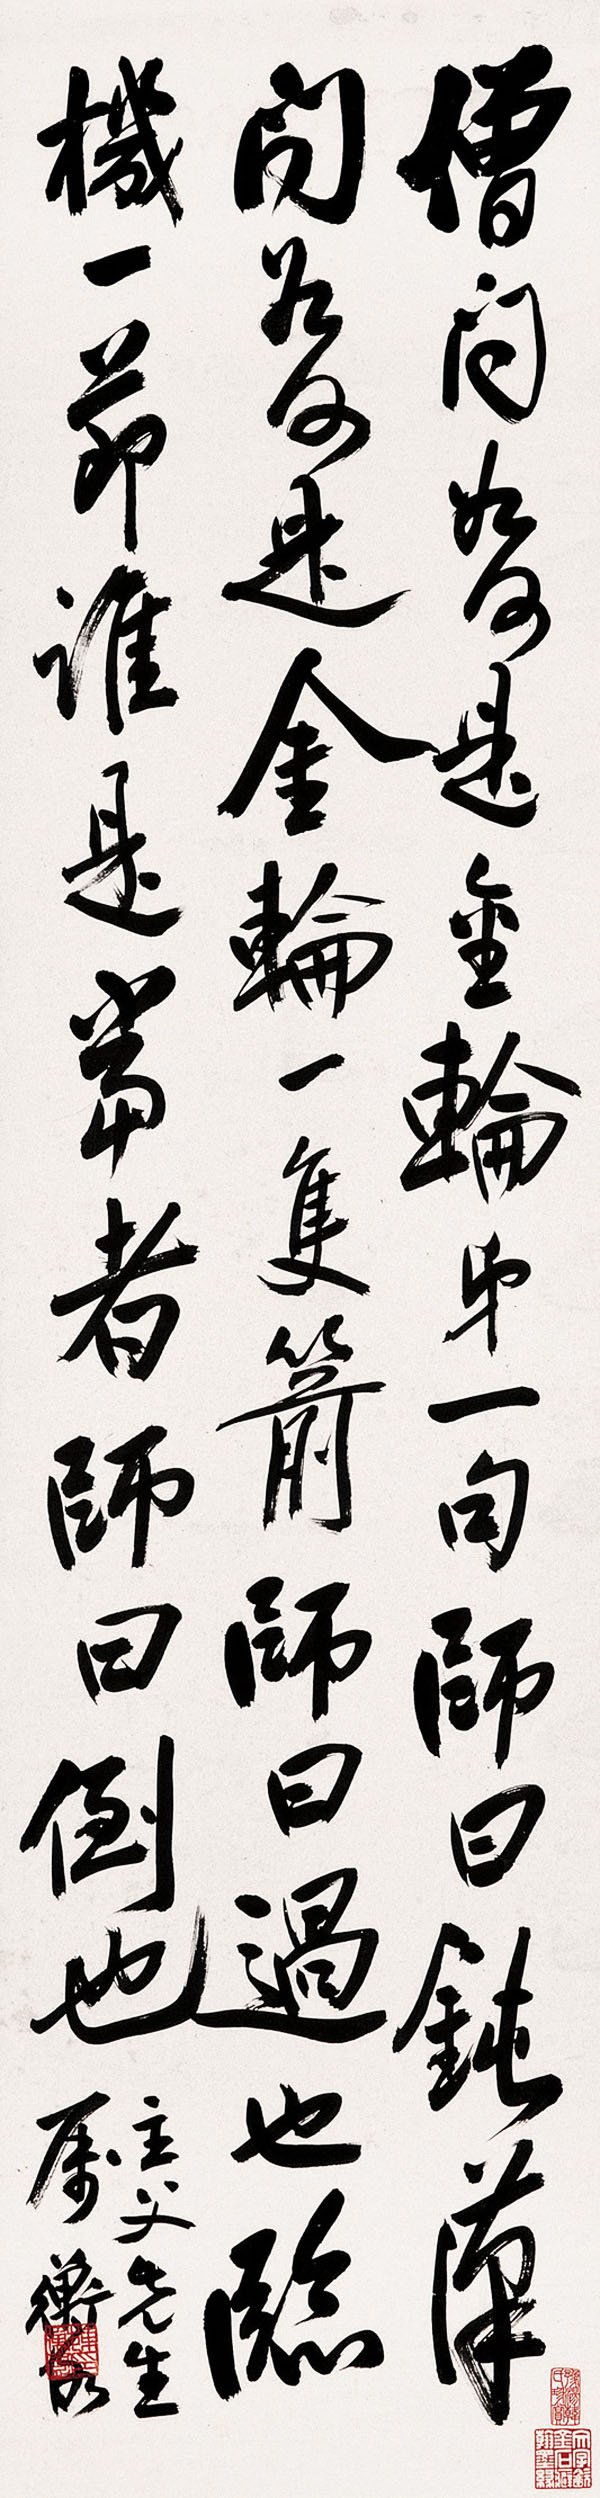 僧问如何是金輪第一句師曰鈍漢
问如何是金輪一隻箭師曰過也臨
機一箭誰是當者師曰倒也
主父先生
属 衡恪